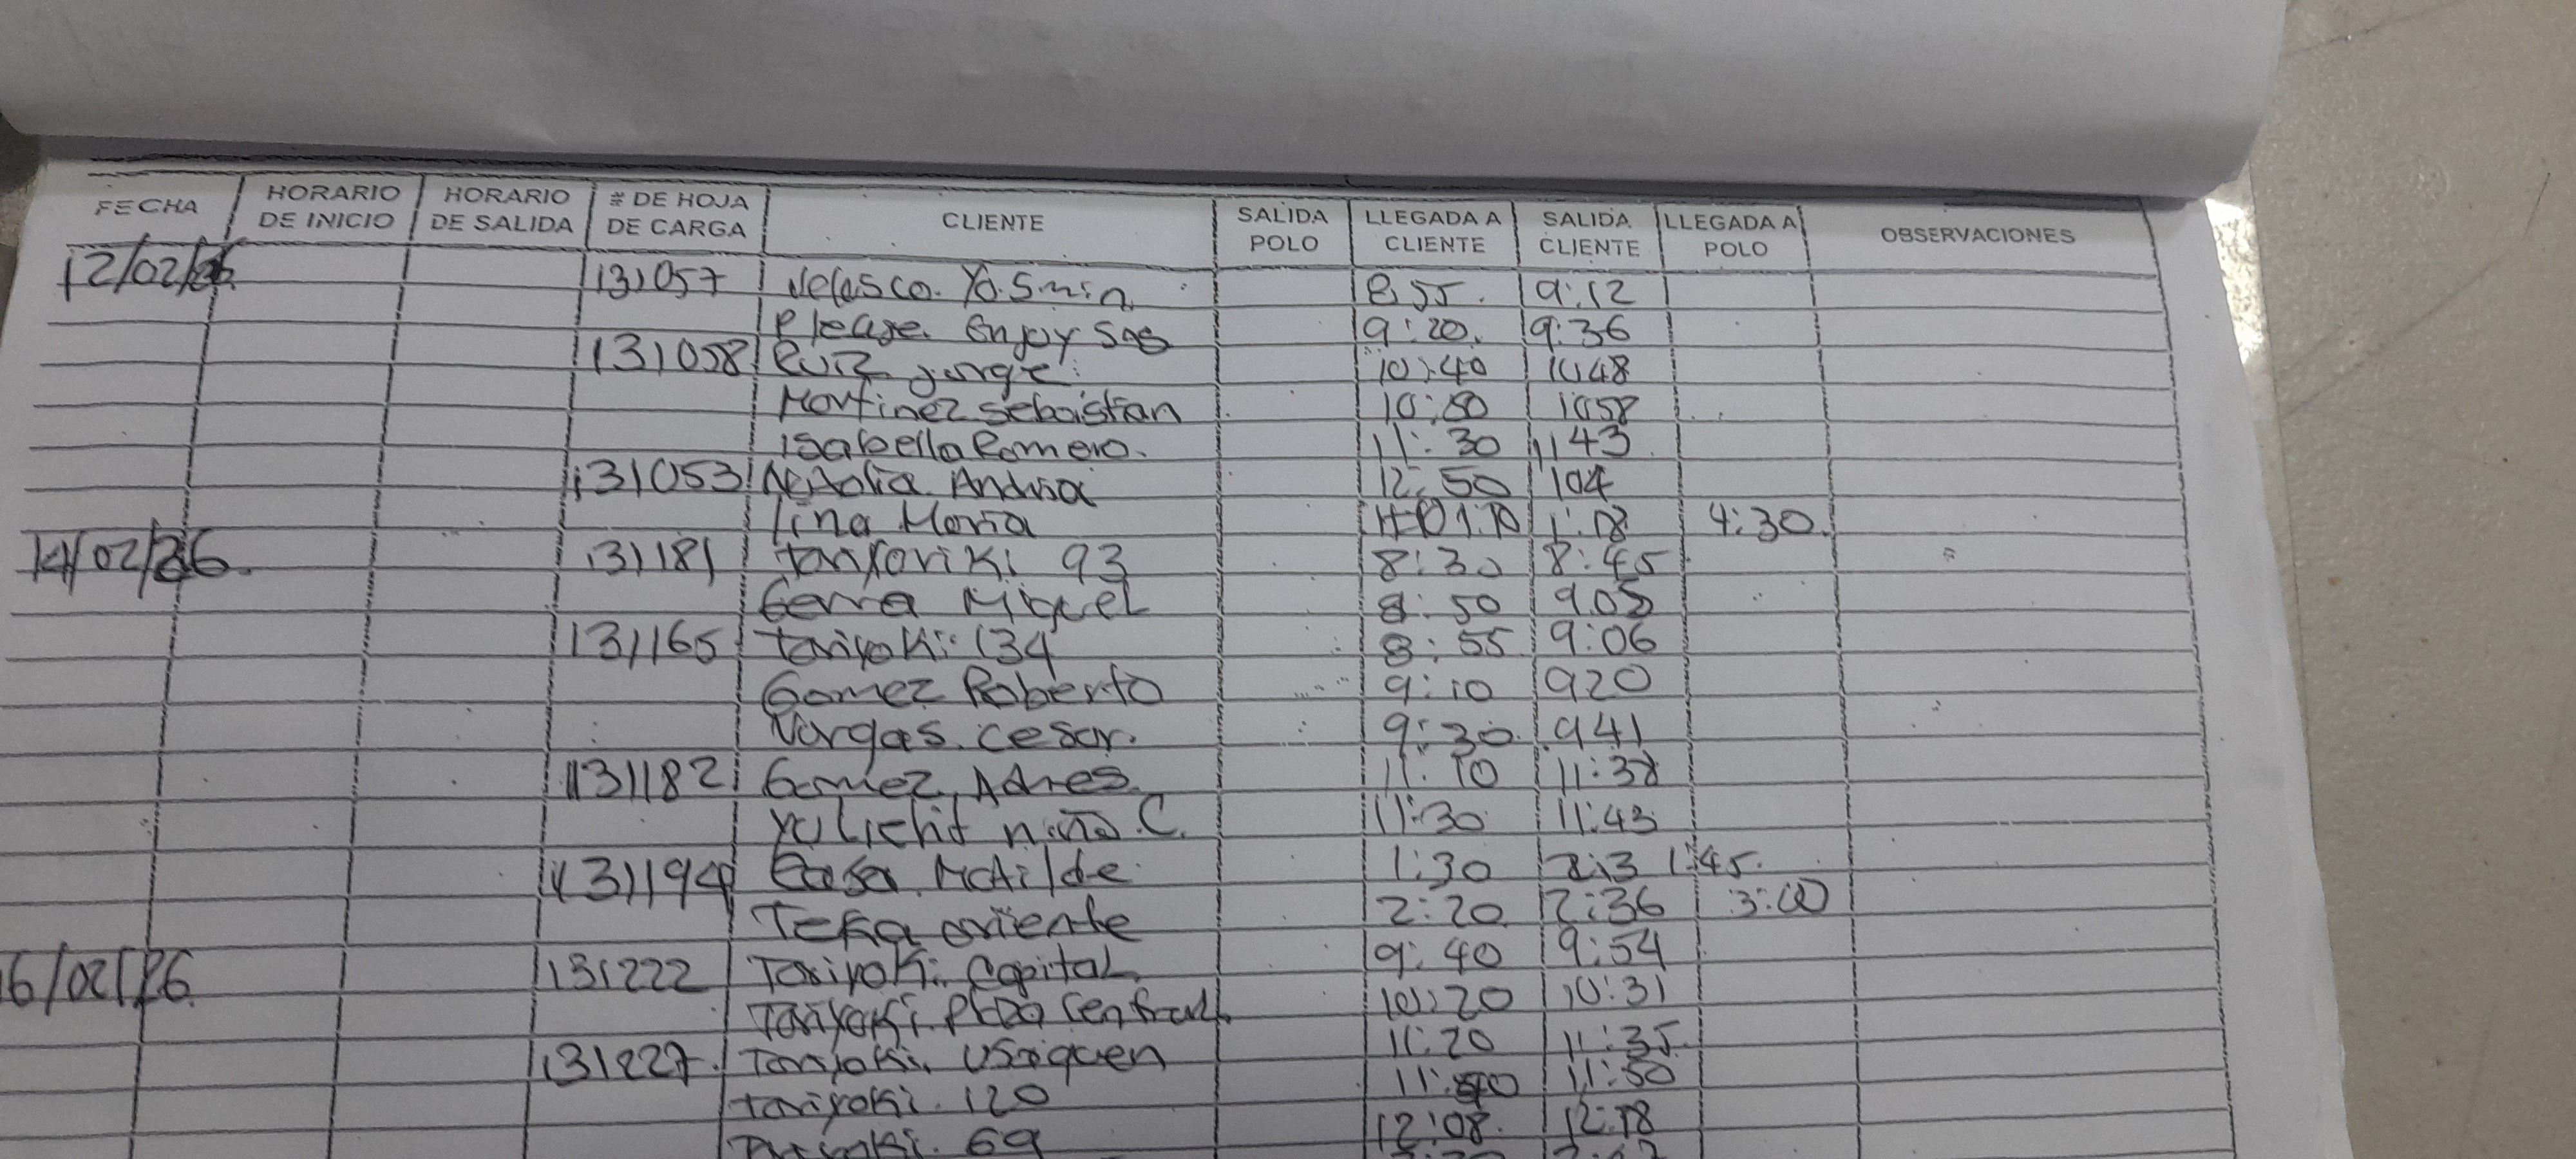 FECHA HORARIO DE INICIO HORARIO DE SALIDA # DE HOJA DE CARGA CLIENTE SALIDA POLO LLEGADA A CLIENTE SALIDA CLIENTE LLEGADA A POLO OBSERVACIONES
12/02/26 131057 Velasco. Yasmin 8:55. 9:12
Please. Enjoy Sas 9:20. 9:36
131058 Ruiz Jorge 10:40 10:48
Martinez Sebaistian 10:50 1058
Isabella Romero. 11:30 11 43
131053 Andrea 12:50 104
lina Maria 1:10 1:18 4:30.
14/02/26. 131181 93 8:30 8:45
Miguel 8:50 9:05
131165 Tariyaki 134 8:55 9:06
Gomez Roberto 9:10 920
Vargas. Cesar. 9:30. 941
131182 Gomez Adres 11:10 11:38
niño C. 11:30 11:43
131194 Casa. 1:30 1:45.
Teka oriente 2:20 2:36 3:00
16/02/26 131222 Tariyaki. Capital 9:40 9:54
Tariyaki. Plaza Central 10:20 10:31
131227. Tariyaki. Usaquen 11:20 11:35
tariyaki. 120 11:40 11:50
69 12:08. 12:18